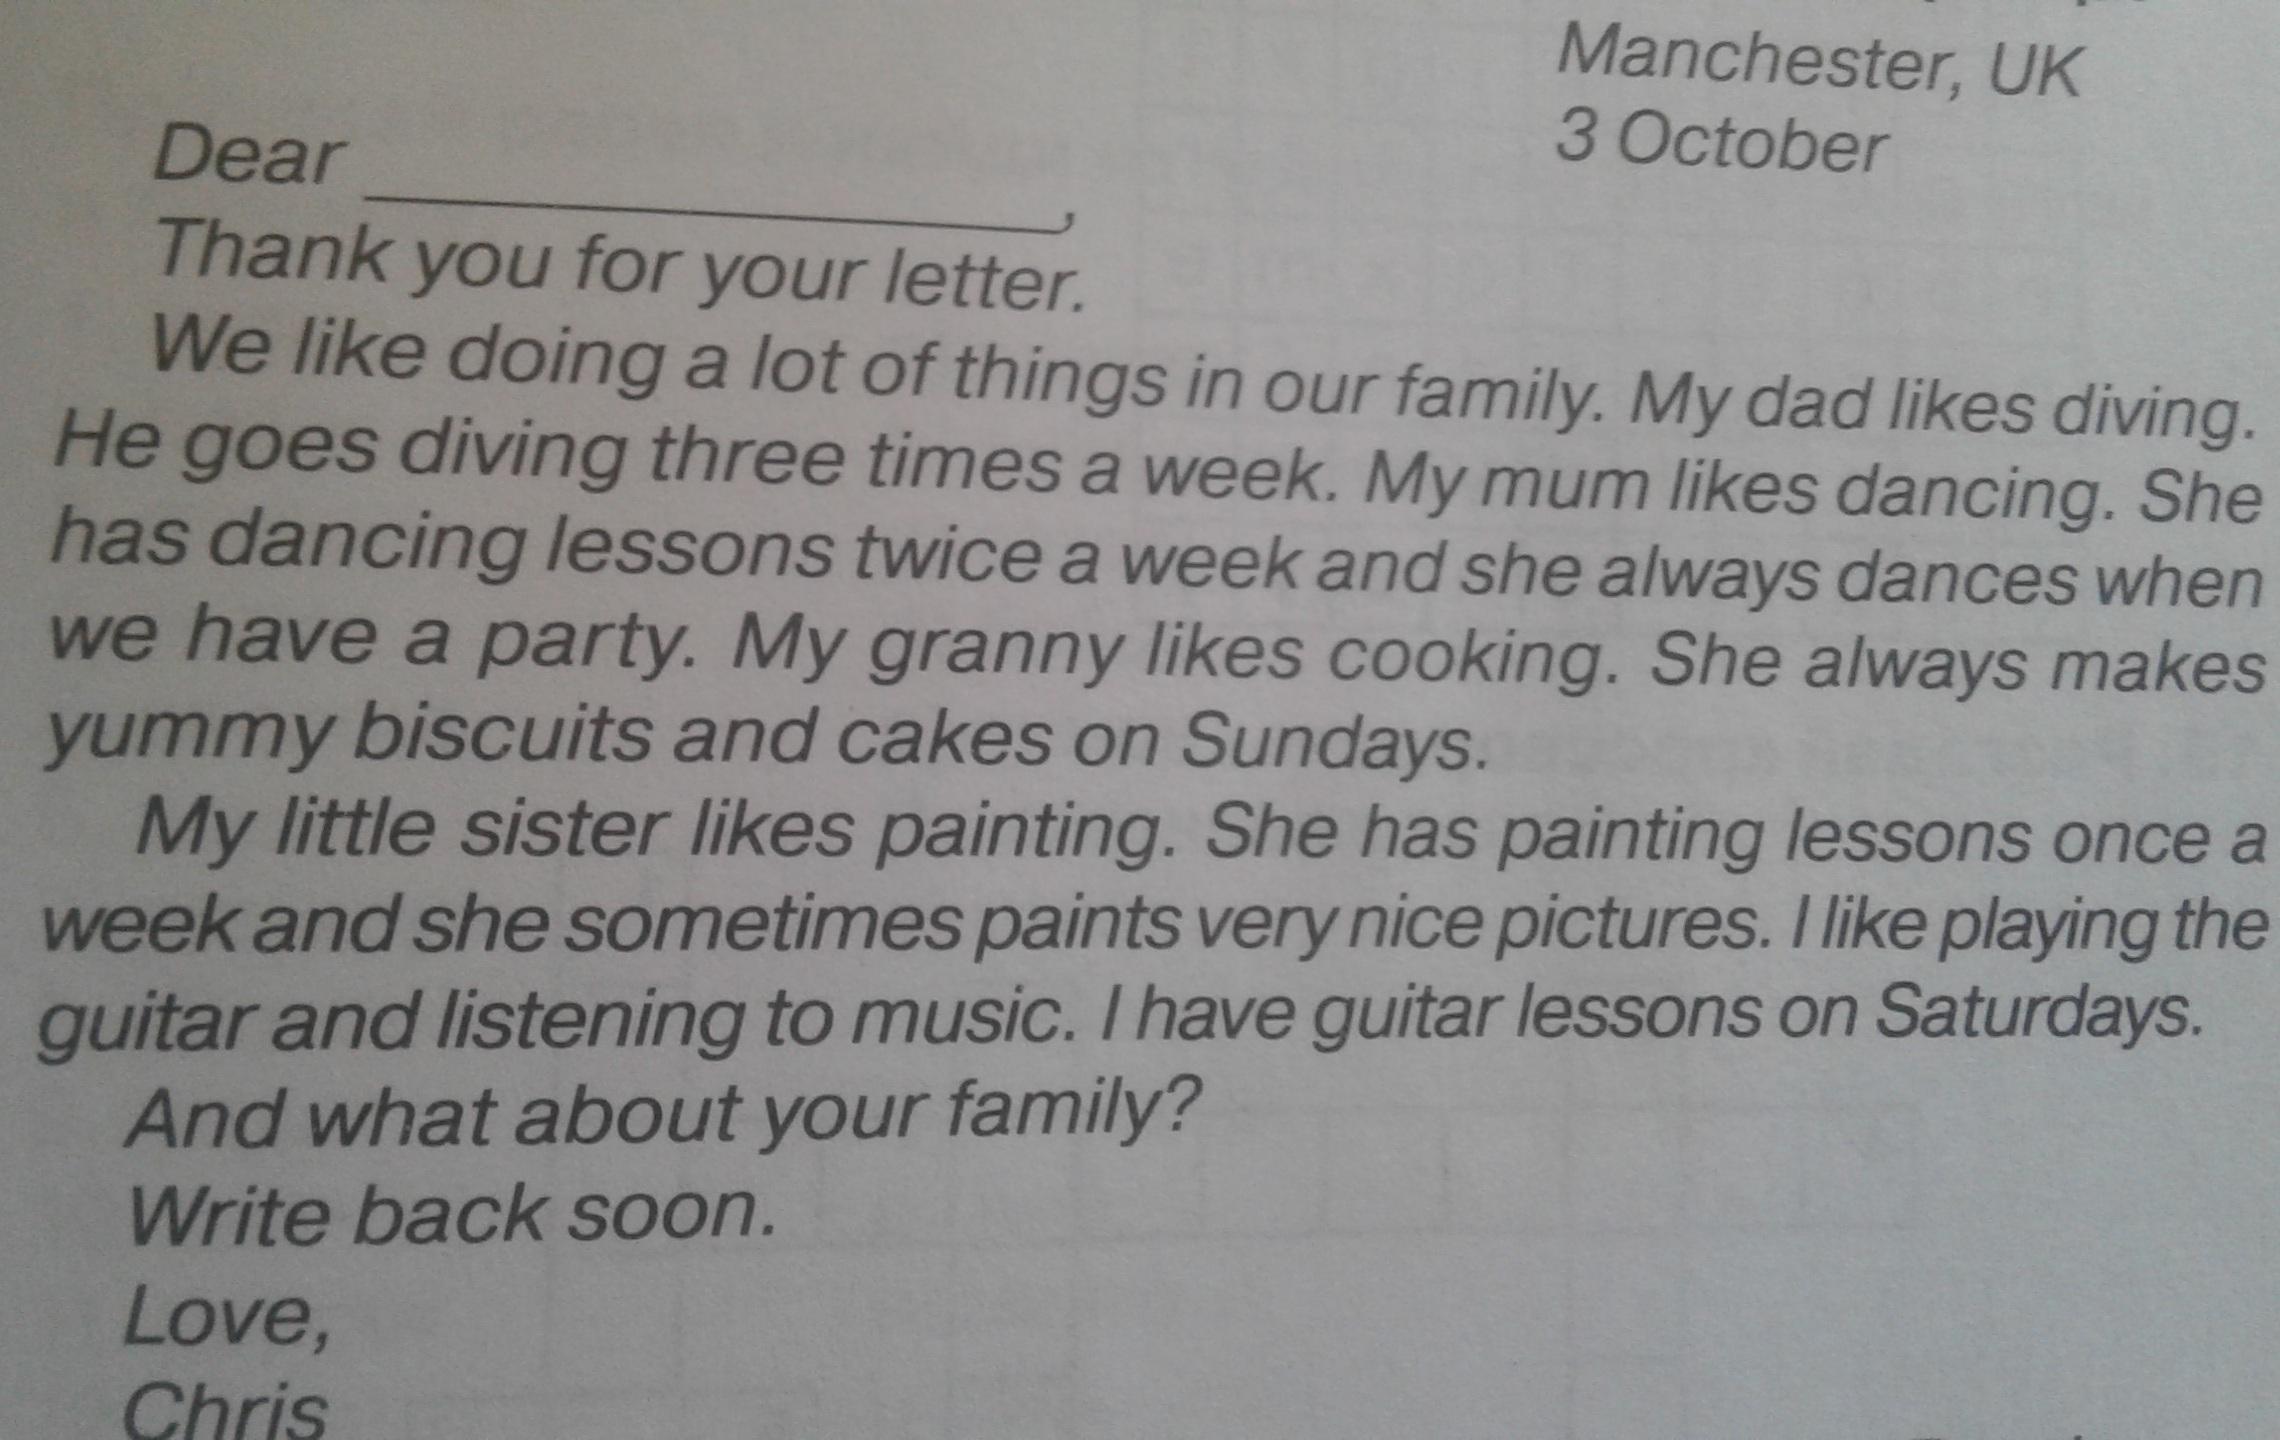 Manchester, UK
3 October
Dear ____________,
Thank you for your letter.
We like doing a lot of things in our family. My dad likes diving.
He goes diving three times a week. My mum likes dancing. She
has dancing lessons twice a week and she always dances when
we have a party. My granny likes cooking. She always makes
yummy biscuits and cakes on Sundays.
My little sister likes painting. She has painting lessons once a
week and she sometimes paints very nice pictures. I like playing the
guitar and listening to music. I have guitar lessons on Saturdays.
And what about your family?
Write back soon.
Love,
Chris